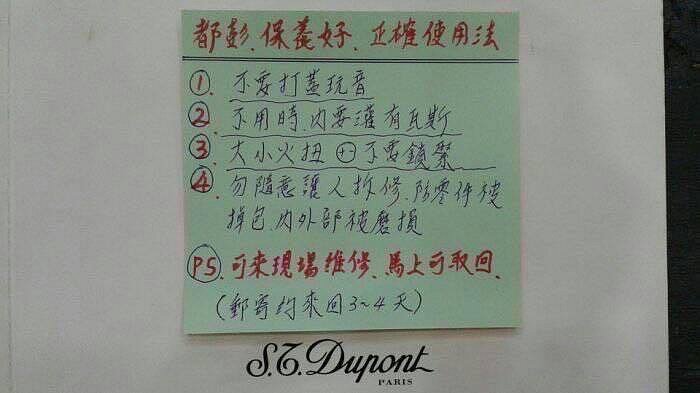 都彭、保養好、正確使用法
①. 不要打蓋玩音
②. 不用時、內要灌有瓦斯
③. 大小火扭⊕⊖不要鎖緊
④. 勿隨意讓人拆修、防零件被
掉包、內外部被磨損
PS. 可來現場維修、馬上可取回、
(郵寄約來回3~4天)
S.T. Dupont
PARIS